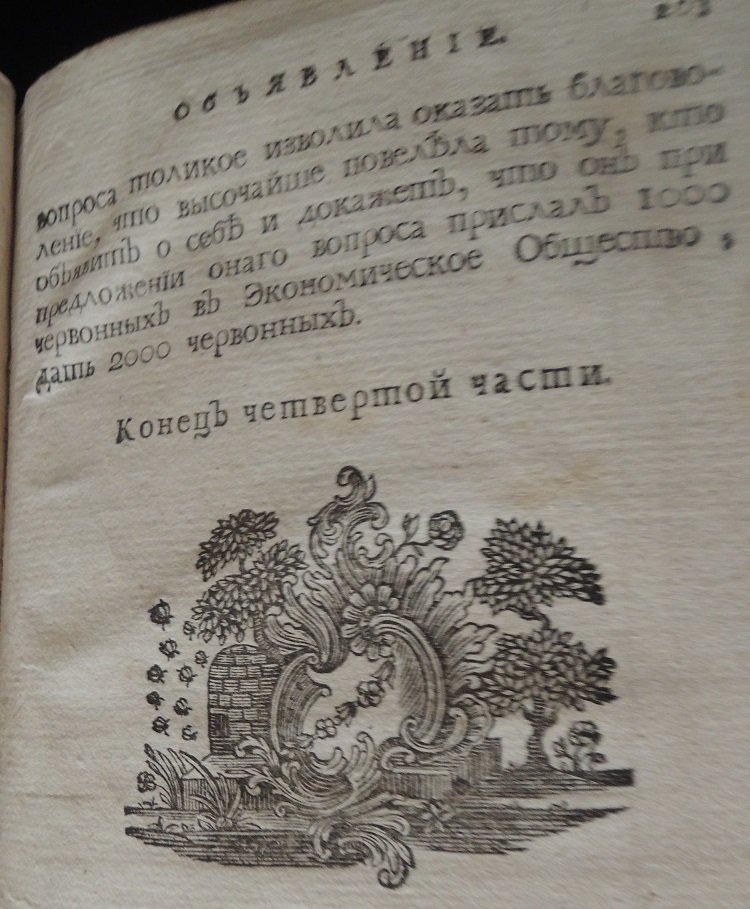 ОБЪЯВЛЕНІЕ.
вопроса толикое изволила оказать благово-
леніе, что высочайше повелѣла тому, кто
объявитъ о себѣ и докажетъ, что онъ при
предложеніи онаго вопроса прислалъ 1000
червонныхъ въ Экономическое Общество,
дать 2000 червонныхъ.
Конецъ четвертой части.